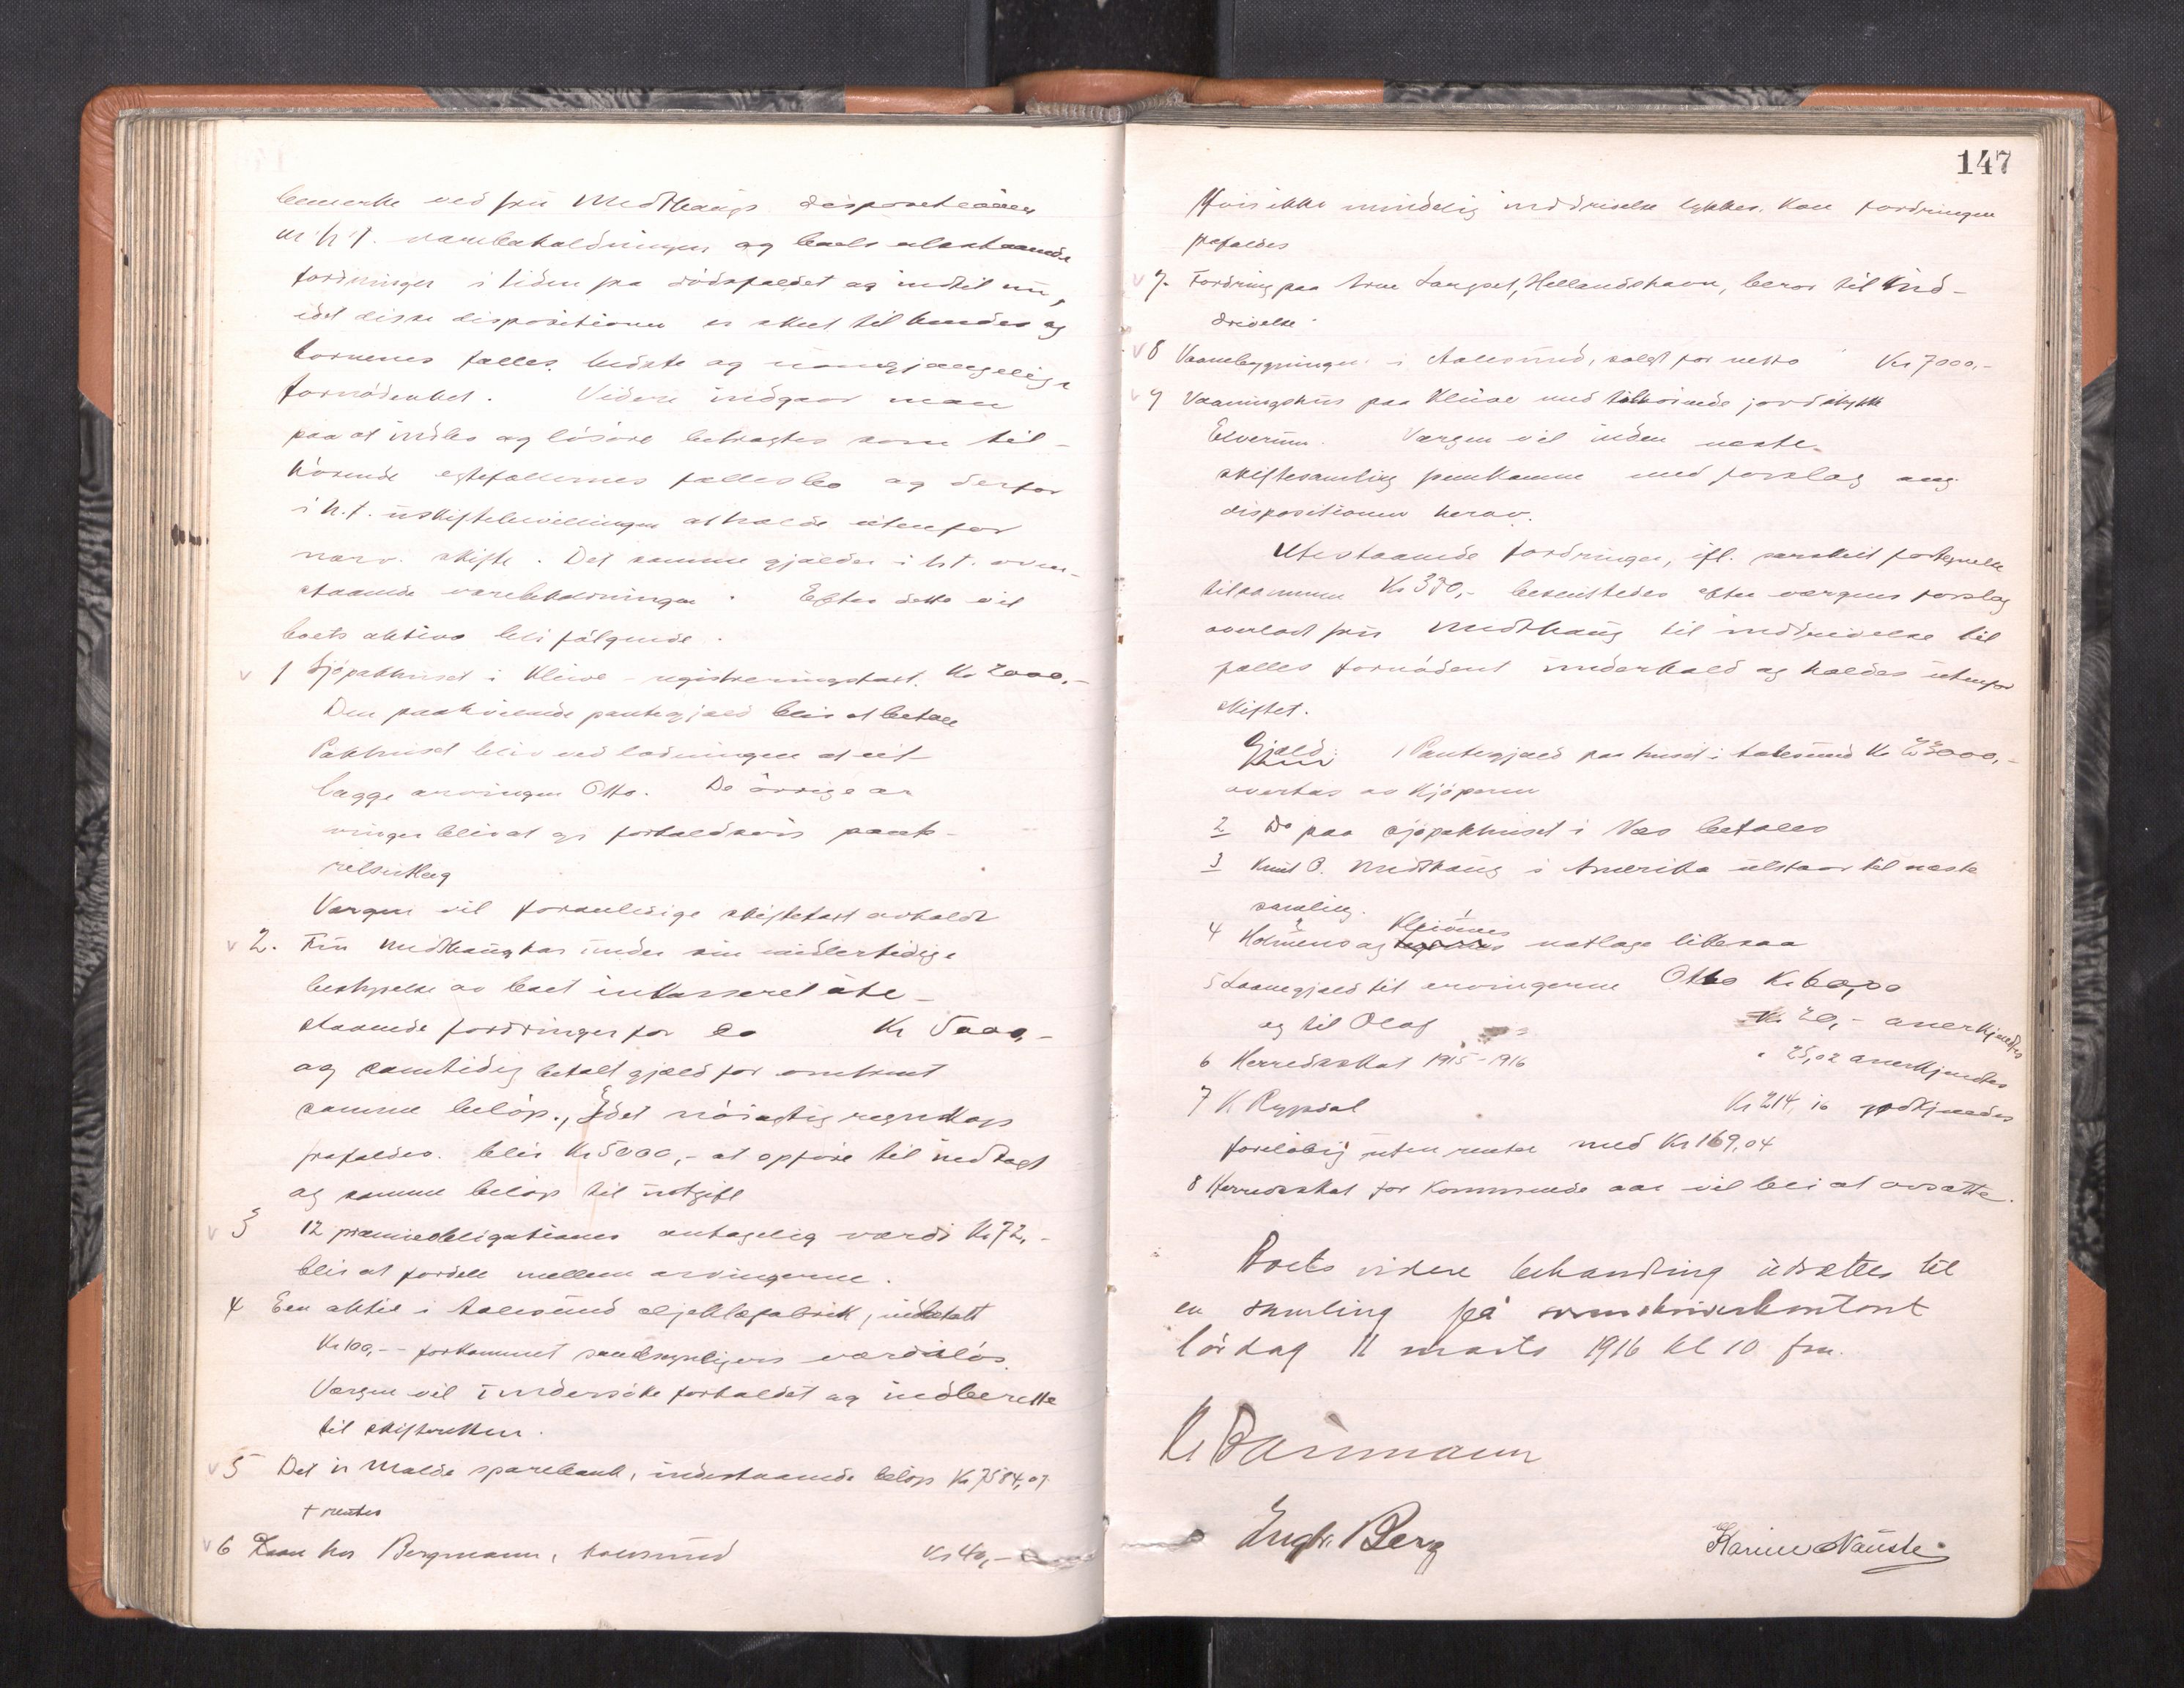 bemerke ved fru Midthaugs dispositioner
m.h.t. varebeholdningen og boets utestaaende
fordringer i tiden fra dödsfaldet og indtil nu,
idet disse dispositioner er skeet til hendes og
börnenes fælles bedste og uomgjængelige
fornödenhet. Videre indgaar man
paa at indbo og lösöre betragtes som til-
hörende egtefællernes fællesbo og derfor
i h.t. uskiftebevillingen at holde utenfor
nærv. skifte. Det samme gjælder i h.t. oven-
staaende varebeholdninger. Efter dette vil
boets aktiva bli fölgende.
1 Sjöpakhuset i Kleive - registreringstakst. Kr 2000,-
Den paahvilende pantegjæld blir at betale
Pakhuset blir ved lodningen at ut-
lægge arvingen Otto. De övrige ar
vinger blir at gi forholdsvis pante-
Vergen vil foranledige skiftetakst avholdt
2. Fru Midthaug har under sin midlertidige
bestyrelse av boet inkasseret ute-
staaende fordringer for ca Kr 5000,-
og samtidig betalt gjæld for omtrent
samme belöp., Idet nöiagtig regnskap
frafaldes. blir Kr 5000,- at opföre til indtægt
og samme belöp til utgift
3 12 præmieobligationer antagelig værdi Kr 72,-
blir at fordele mellem arvingerne.
4 Een aktie i Aalesund oljeklæfabrik, indbetalt
Kr 100,- - forkommet sandsynligvis værdilös.
Vergen vil undersöke forholdet og indberette
til skifteretten.
5 Det i Molde sparebank, indestaaende belöp Kr 7584,07
+ renter
6 Laan hos Bergmann, Aalesund Kr 40,-
147
Hvis ikke mindelig inddrivelse lykkes. kan fordringen
frafaldes
7. Fordring paa Arne Langset, Hellandshavn, beror til ind-
drivelse.
8 Vaanebygningen i Aalesund, solgt for netto Kr 7000,-
9 Vaaningshus paa Kleive med tilhörende jordstykke
Elverum. Vergen vil inden neste
skiftesamling fremkomme med forslag ang.
dispositionen herav.
Utestaaende fordringer, ifl. særskilt fortegnelse
tilsammen Kr 370,- besluttedes efter vergens forslag
overlatt fru Midthaug til inddrivelse til
fælles fornödent underhold og holdes utenfor
skiftet.
Gjæld: 1 Pantegjæld paa huset i Aalesund Kr 23000,-
overtas av kjöperen
2 Do paa sjöpakhuset i Væs betales
3 Knut O. Midthaug i Amerika utstaar til neste
samling.
4 Holmens og Kleivnes natlage likesaa
5 Laanegjæld til arvingerne Otto Kr 60,00
og til Olaf Kr 20,- anerkjendtes
6 Herredsskat 1915-1916 " 25,02 anerkjendtes
7 K. Rypdal Kr 214,10 godkjendes
forelöbig uten renter med Kr 169,04
8 Herredsskat for kommende aar vil bli at avsætte.
Boets videre behandling utsættes til
en samling på sorenskriverkontoret
lördag 11 marts 1916 kl 10 fm.
Engbr. Berg
Karine Nauste